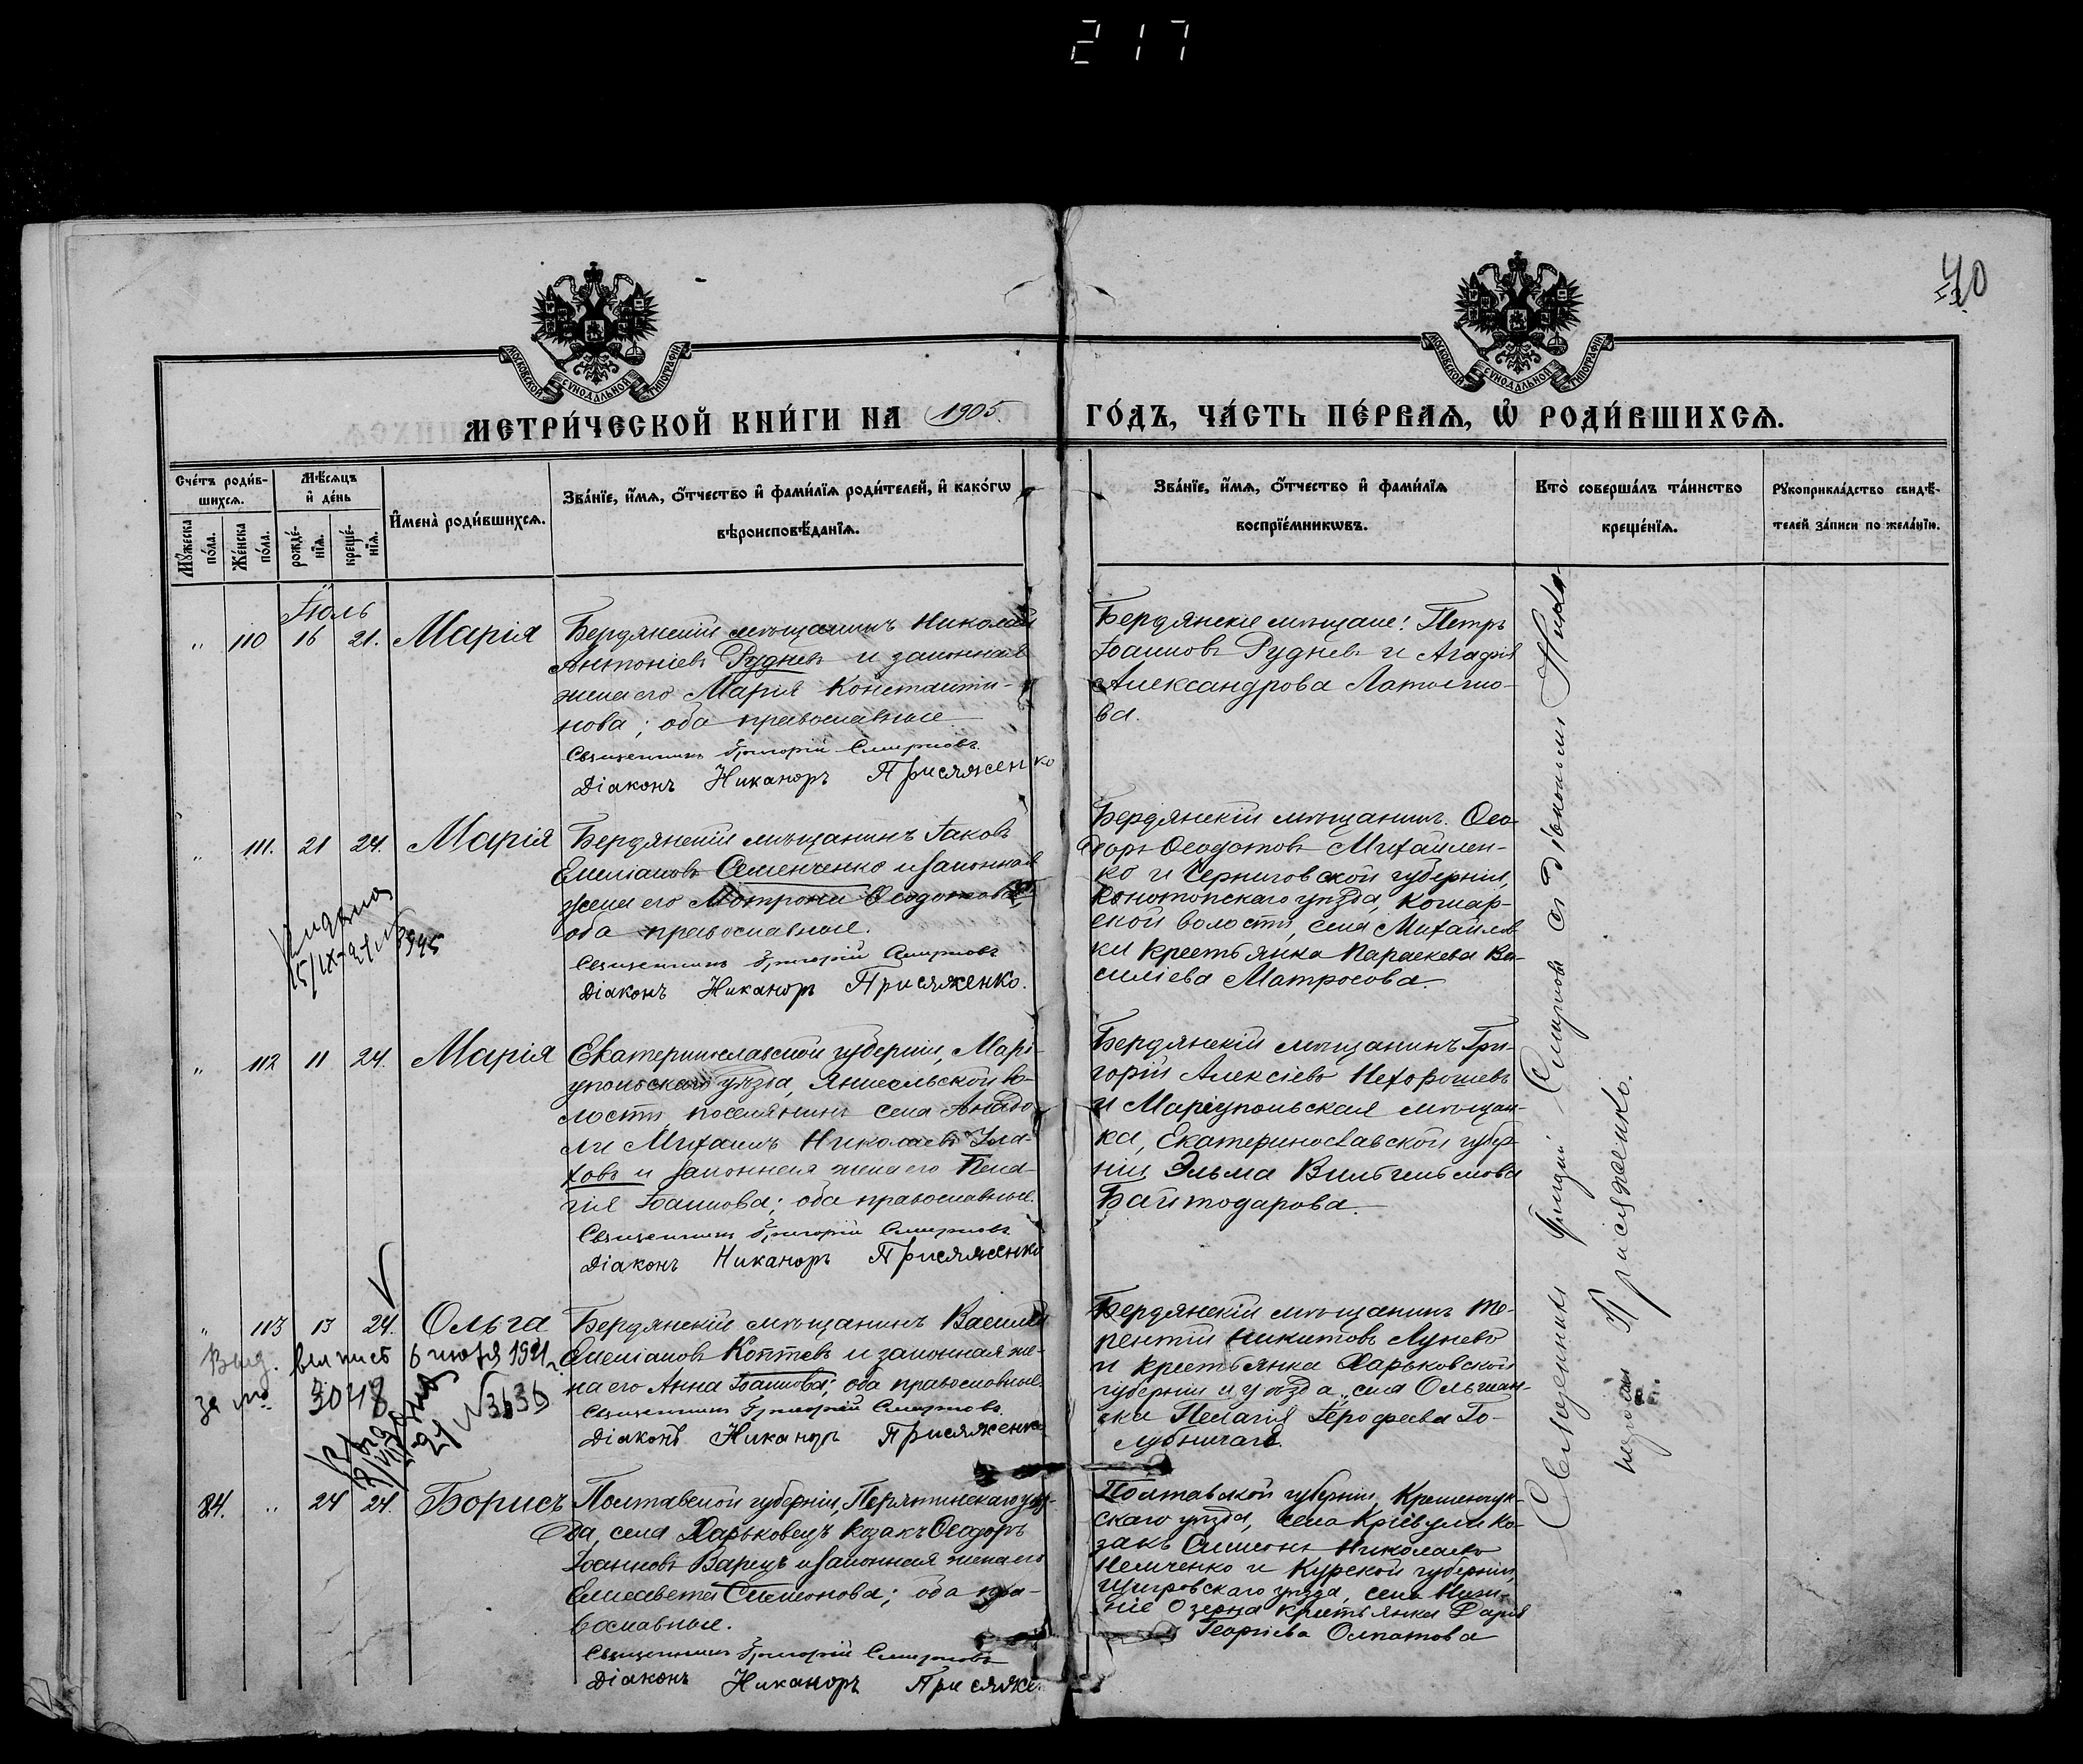 217
40
МОСКОВСКОЙ СѴНОДАЛЬНОЙ ТИПОГРАФІИ
МОСКОВСКОЙ СѴНОДАЛЬНОЙ ТИПОГРАФІИ
МЕТРИ́ЧЕСКОЙ КНИ́ГИ НА 1905. ГО́ДЪ, ЧА́СТЬ ПЕ́РВАѦ, Ѡ҆ РОДИ́ВШИХСѦ.
Сче́тъ роди́в-
шихсѧ.
Мѣ́сѧцъ
и҆ де́нь
И҆мена̀ роди́вшихсѧ.
Зва́нїе, и҆́мѧ, ѻ҆́тчество и҆ фами́лїѧ роди́телей, и҆ како́гѡ
вѣроисповѣ́данїѧ.
Зва́нїе, и҆́мѧ, ѻ҆́тчество и҆ фами́лїѧ
воспрїе́мникѡвъ.
Кто̀ соверша́лъ та́инство
креще́нїѧ.
Рꙋкоприкла́дство свидѣ́-
телей за́писи по жела́нїю.
Мꙋ́жеска
по́ла.
Же́нска
по́ла.
рожде́-
нїѧ.
креще́-
нїѧ.
Іюль
" 110 16 21. Марія
Бердянскій мѣщанинъ Николай
Антоніевъ Рудневъ и законная
жена его Марія Константи-
нова; оба православные
Священникъ Григорій Смирновъ.
Діаконъ Никаноръ Присяженко
Бердянскіе мѣщане: Петръ
Іоанновъ Рудневъ и Агафія
Александрова
ва.
" 111. 21 24. Марія
Бердянскій мѣщанинъ Іаковъ
Емеліановъ Семенченко и законная
жена его Матрона Ѳеодотова;
оба православные.
Священникъ Григорій Смирновъ
Діаконъ Никаноръ Присяженко.
15/IX-
3945
Бердянскій мѣщанинъ Ѳео-
доръ Ѳеодотовъ Михайлен-
ко и Черниговской губерніи,
Конотопскаго уѣзда,
ской волости, села Михайлов
ки крестьянка Параскева Ва-
силіева Матросова.
" 112 11 24. Марія
Екатеринославской губерніи, Марі-
упольскаго уѣзда, Янисельской во-
лости, поселянинъ села Анадо-
ли Михаилъ Николаевъ
ховъ и законная жена его Пела-
гія Іоаннова; оба православные.
Священникъ Григорій Смирновъ.
Діаконъ Никаноръ Присяженко
Бердянскій мѣщанинъ Гри-
горій Алексіевъ Нехорошевъ
и Маріупольская мѣщан-
ка, Екатеринославской губер-
ніи Эльма Вильгельмова
Байтодарова.
" 113 13 24. Ольга
Бердянскій мѣщанинъ Василій
Емеліановъ Коптевъ и законная же-
на его Анна Іоаннова; оба православные.
Священникъ Григорій Смирновъ.
Діаконъ Никаноръ Присяженко
Выд. выпись 6 июня 1921 г.
за № 3048
№ 3636
Бердянскій мѣщанинъ Те-
рентій Никитовъ Луневъ
и крестьянка Харьковской
губерніи и уѣзда, села Ольшан-
ки Пелагія Іерофеева Го-
84. " 24 24. Борисъ
Полтавской губерніи, Пирятинскаго уѣз-
да, села Харьковецъ козакъ Ѳеодоръ
Іоанновъ Варецъ и законная жена его
Елисавета Симеонова; оба пра-
вославные.
Священникъ Григорій Смирновъ
Діаконъ Никаноръ Присяже
Полтавской губерніи, Кременчук-
скаго уѣзда, села ко-
закъ Симеонъ Николаевъ
Немченко и Курской губерніи,
Щигровскаго уѣзда, села Ниж-
ніе Озерна крестьянка Дарія
Георгіева Олпатова
Священникъ Григорій Смирновъ съ діакономъ Ника-
норомъ Присяженко.